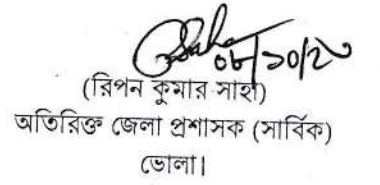 ০৮/১০/২৩
(রিপন কুমার সাহা)
অতিরিক্ত জেলা প্রশাসক (সার্বিক)
ভোলা।